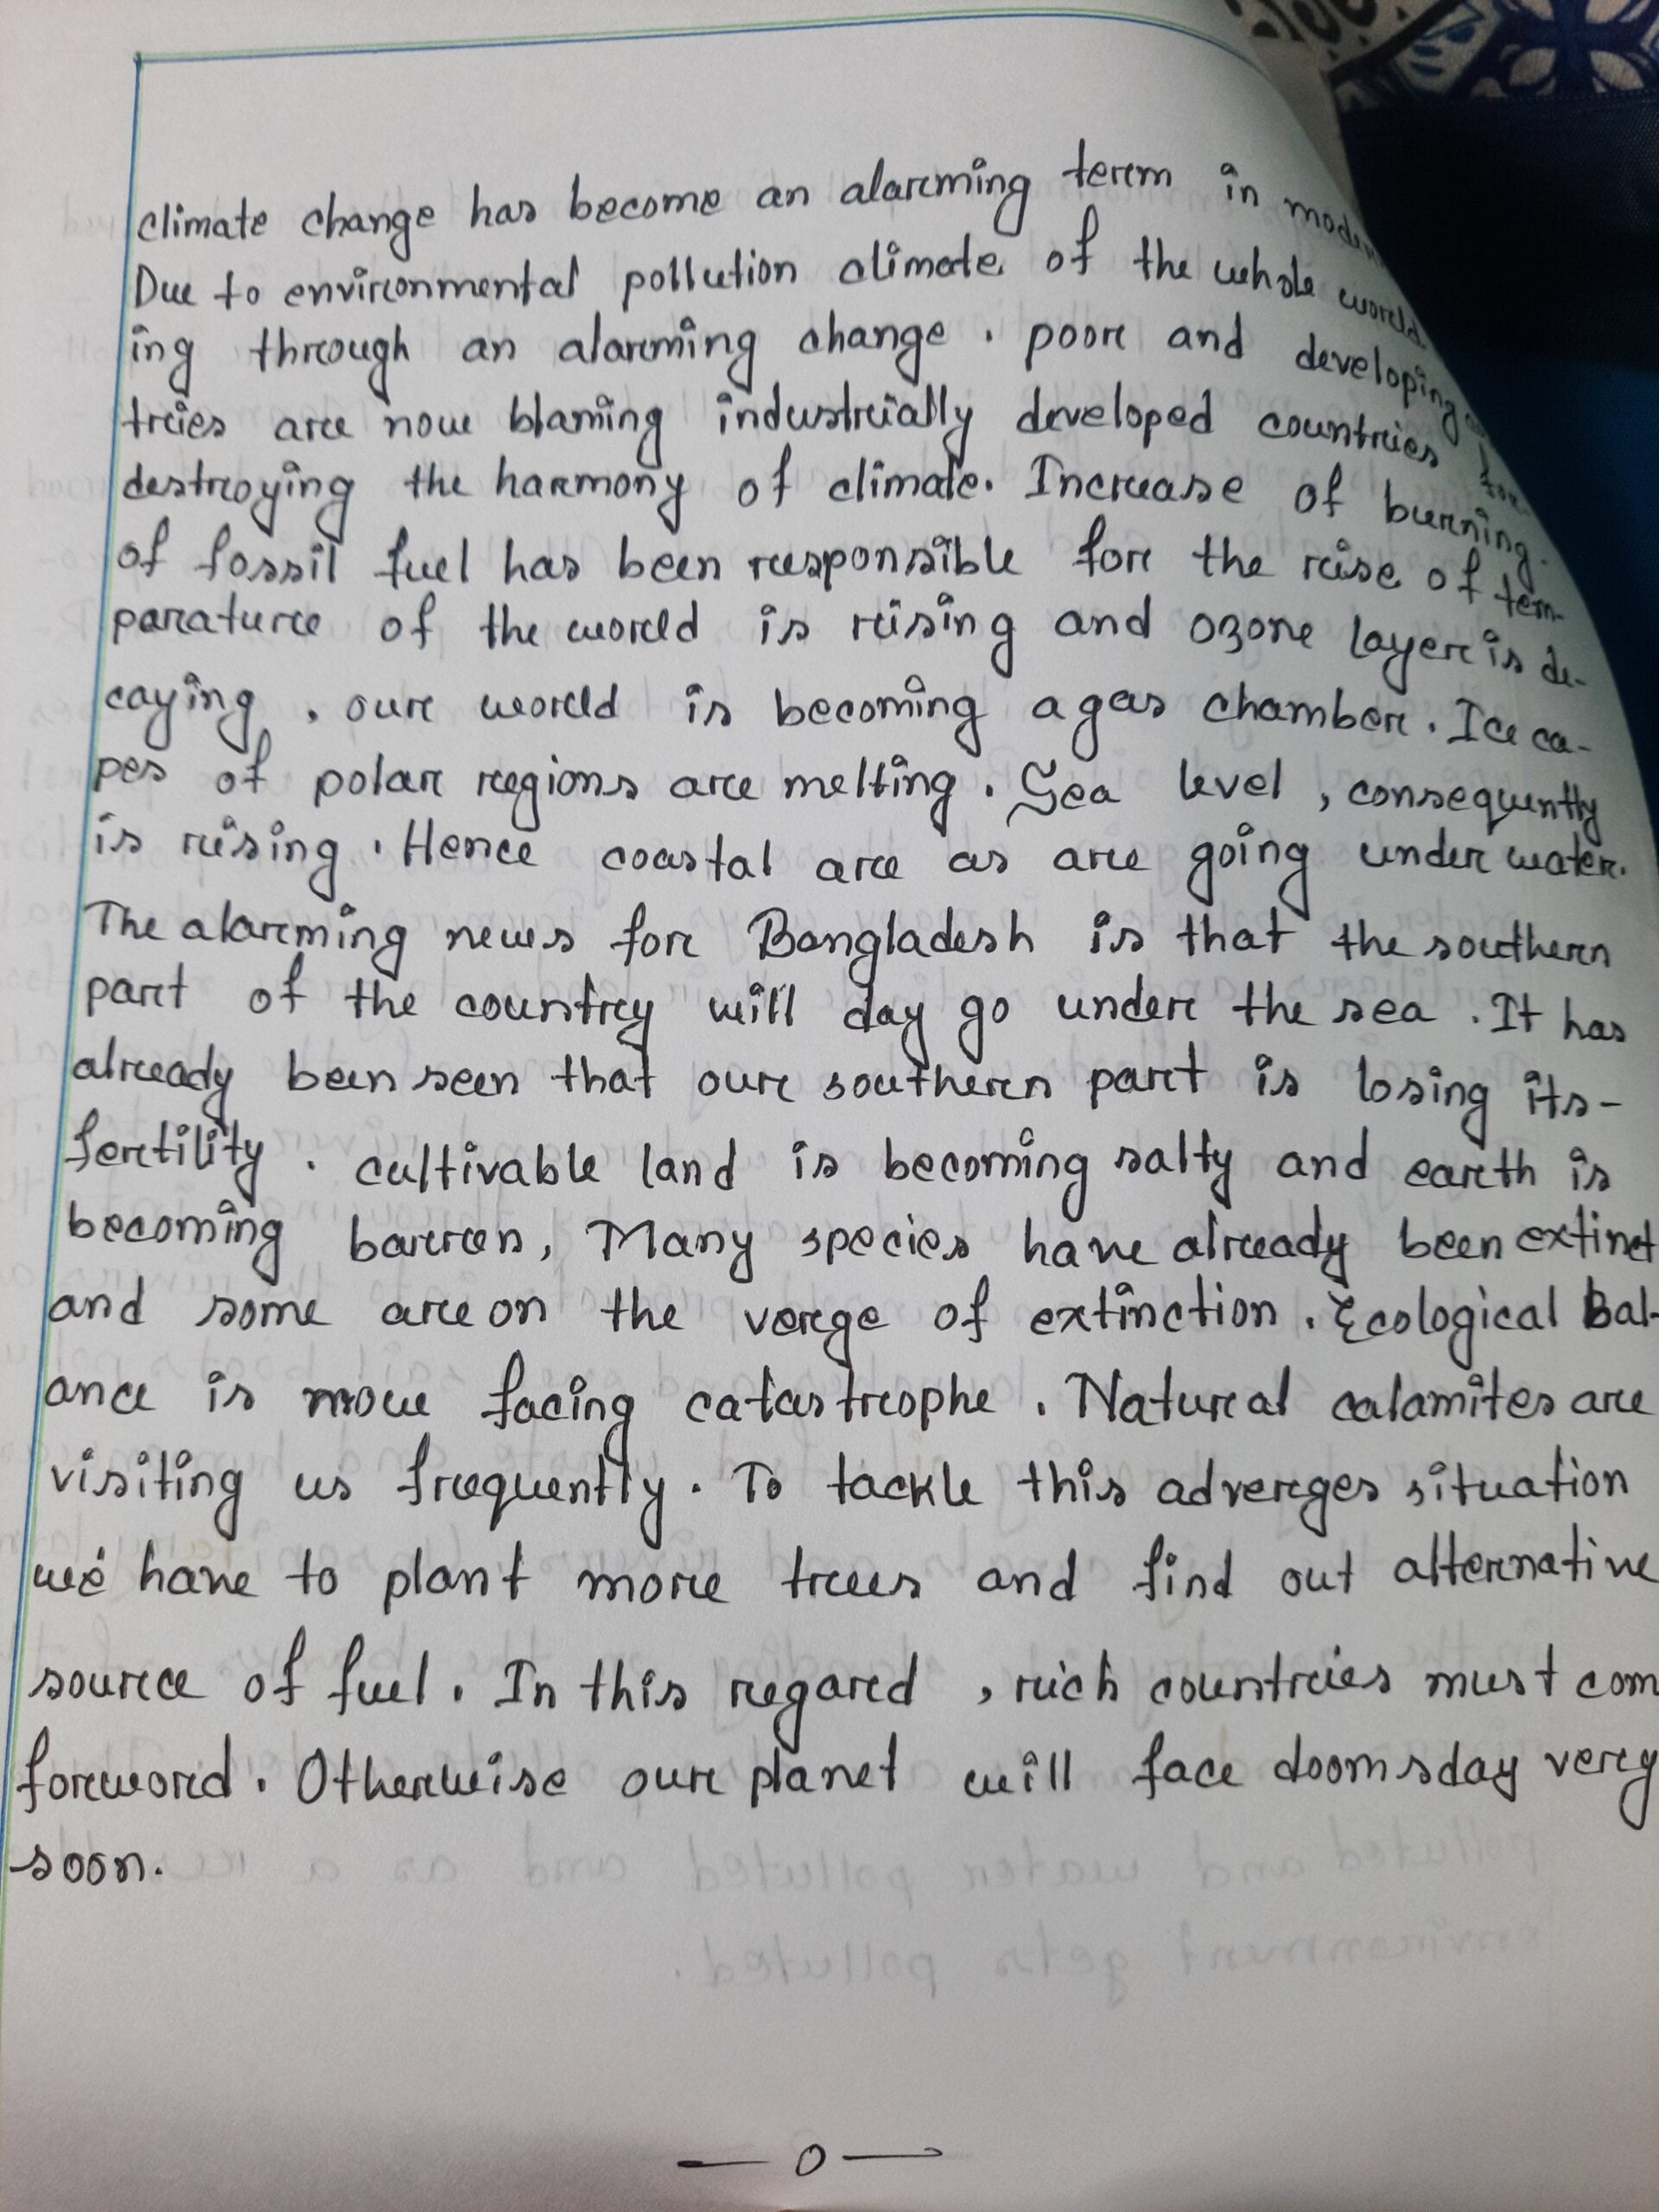 climate change has become an alarming term in
Due to environmental pollution climate of the whole world
ing through an alarming change . poor and developing
tries are now blaming industrially developed countries for
destroying the harmony of climate. Increase of burning
of fossil fuel has been responsible for the rise of tem-
parature of the world is rising and ozone layer is de-
caying , our world is becoming a gas chamber. Ice ca-
pes of polar regions are melting. Sea level , consequently
is rising . Hence coastal are as are going under water.
The alarming news for Bangladesh is that the southern
part of the country will day go under the sea . It has
already been seen that our southern part is losing its-
fertility . cultivable land is becoming salty and earth is
becoming barren, Many species have already been extinct
and some are on the verge of extinction . Ecological Bal-
ance is now facing catastrophe . Natural calamites are
visiting us frequently. To tackle this adverges situation
we have to plant more trees and find out alternative
source of fuel. In this regard , rich countries must com
forword. Otherwise our planet will face doomsday very
soon.
— 0 —